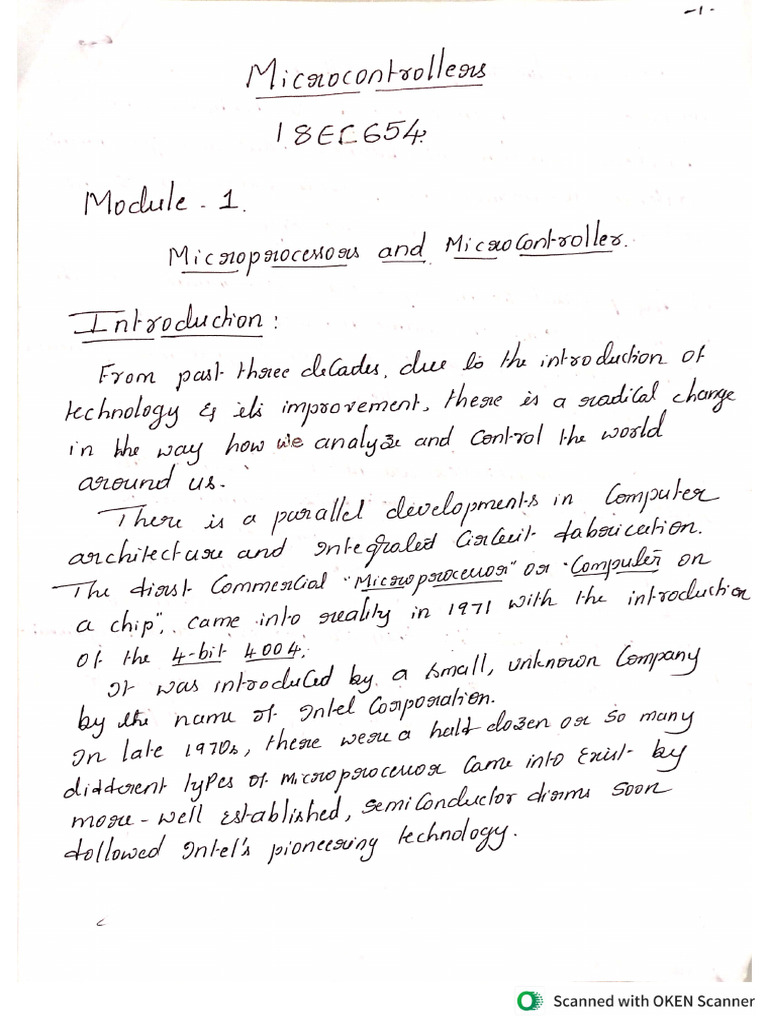 -1-
Microcontrollers
18EC654.
Module - 1.
Microprocessors and MicroController.
Introduction :
From past three decades, due to the introduction of
technology & it's improvement, there is a radical change
in the way how we analyze and control the world
around us.
There is a parallel developments in Computer
architecture and Integrated Circuit fabrication.
The first Commercial "Microprocessor" or "Computer on
a chip", came into reality in 1971 with the introduction
of the 4-bit 4004.
It was introduced by a small, unknown Company
by the name of Intel Corporation.
In late 1970s, there were a half dozen or so many
different types of microprocessor came into exist by
more - well established, semiconductor firms soon
followed Intel's pioneering technology.
Scanned with OKEN Scanner